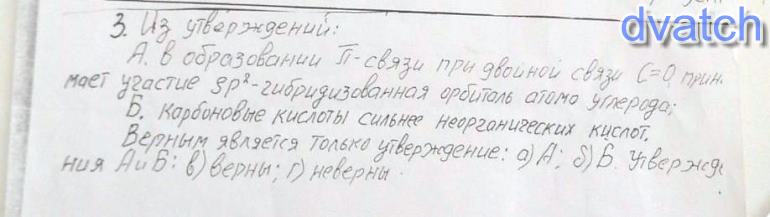 dvatch
3. Из утверждений:
А. в образовании П-связи при двойной связи С=О прин.
мает участие sp²-гибридизованная орбиталь атома углерода;
Б. Карбоновые кислоты сильнее неорганических кислот.
Верным является только утверждение: а) А; б) Б. Утвержде
ния А и Б: в) верны; г) неверны.